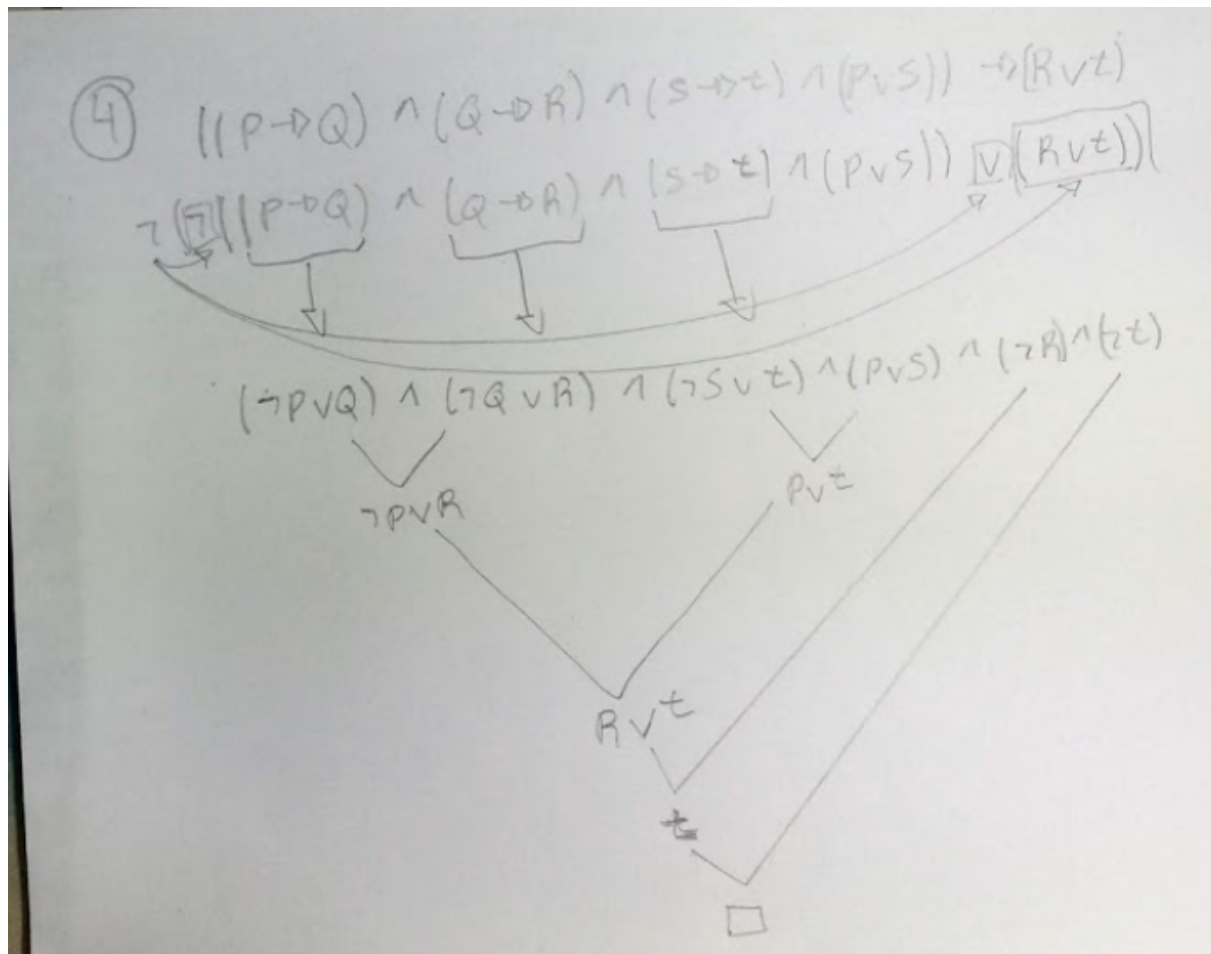 ④ ((P→Q) ∧ (Q→R) ∧ (S→t) ∧ (P∨S)) → (R∨t)
¬(¬((P→Q) ∧ (Q→R) ∧ (S→t) ∧ (P∨S)) ∨ (R∨t))
(¬P∨Q) ∧ (¬Q∨R) ∧ (¬S∨t) ∧ (P∨S) ∧ (¬R) ∧ (¬t)
¬P∨R P∨t
R∨t
t
□